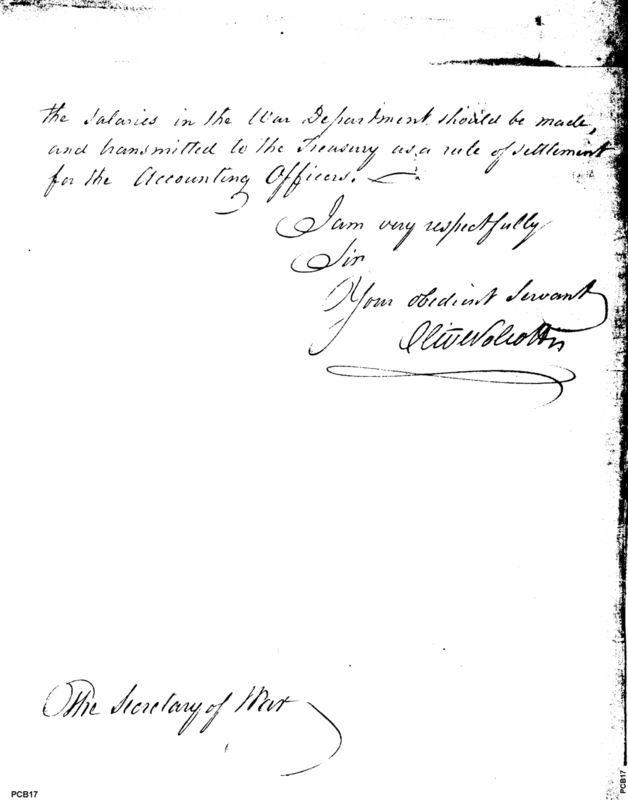 the Salaries in the War Department should be made,
and transmitted to the Treasury as a rule of settlement
for the Accounting Officers.
I am very respectfully
Sir
Your obedient Servant
Oliv Wolcott Jr
The Secretary of War
PCB17
PCB17